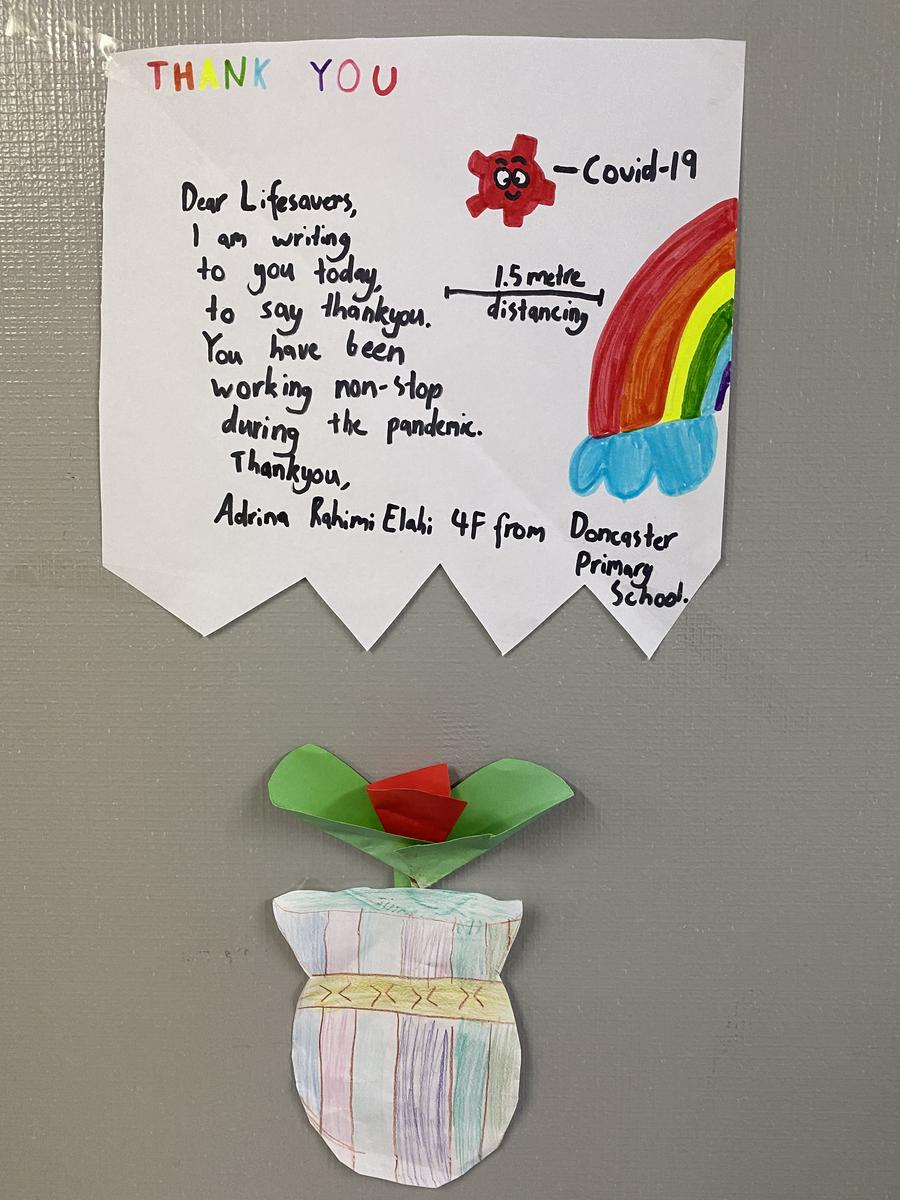 THANK YOU
Covid-19
Dear Lifesavers,
I am writing
to you today,
to say thankyou.
You have been
working non-stop
during the pandemic.
Thankyou,
Adrina Rahimi Elahi 4F from Doncaster
Primary
School.
1.5 metre
distancing